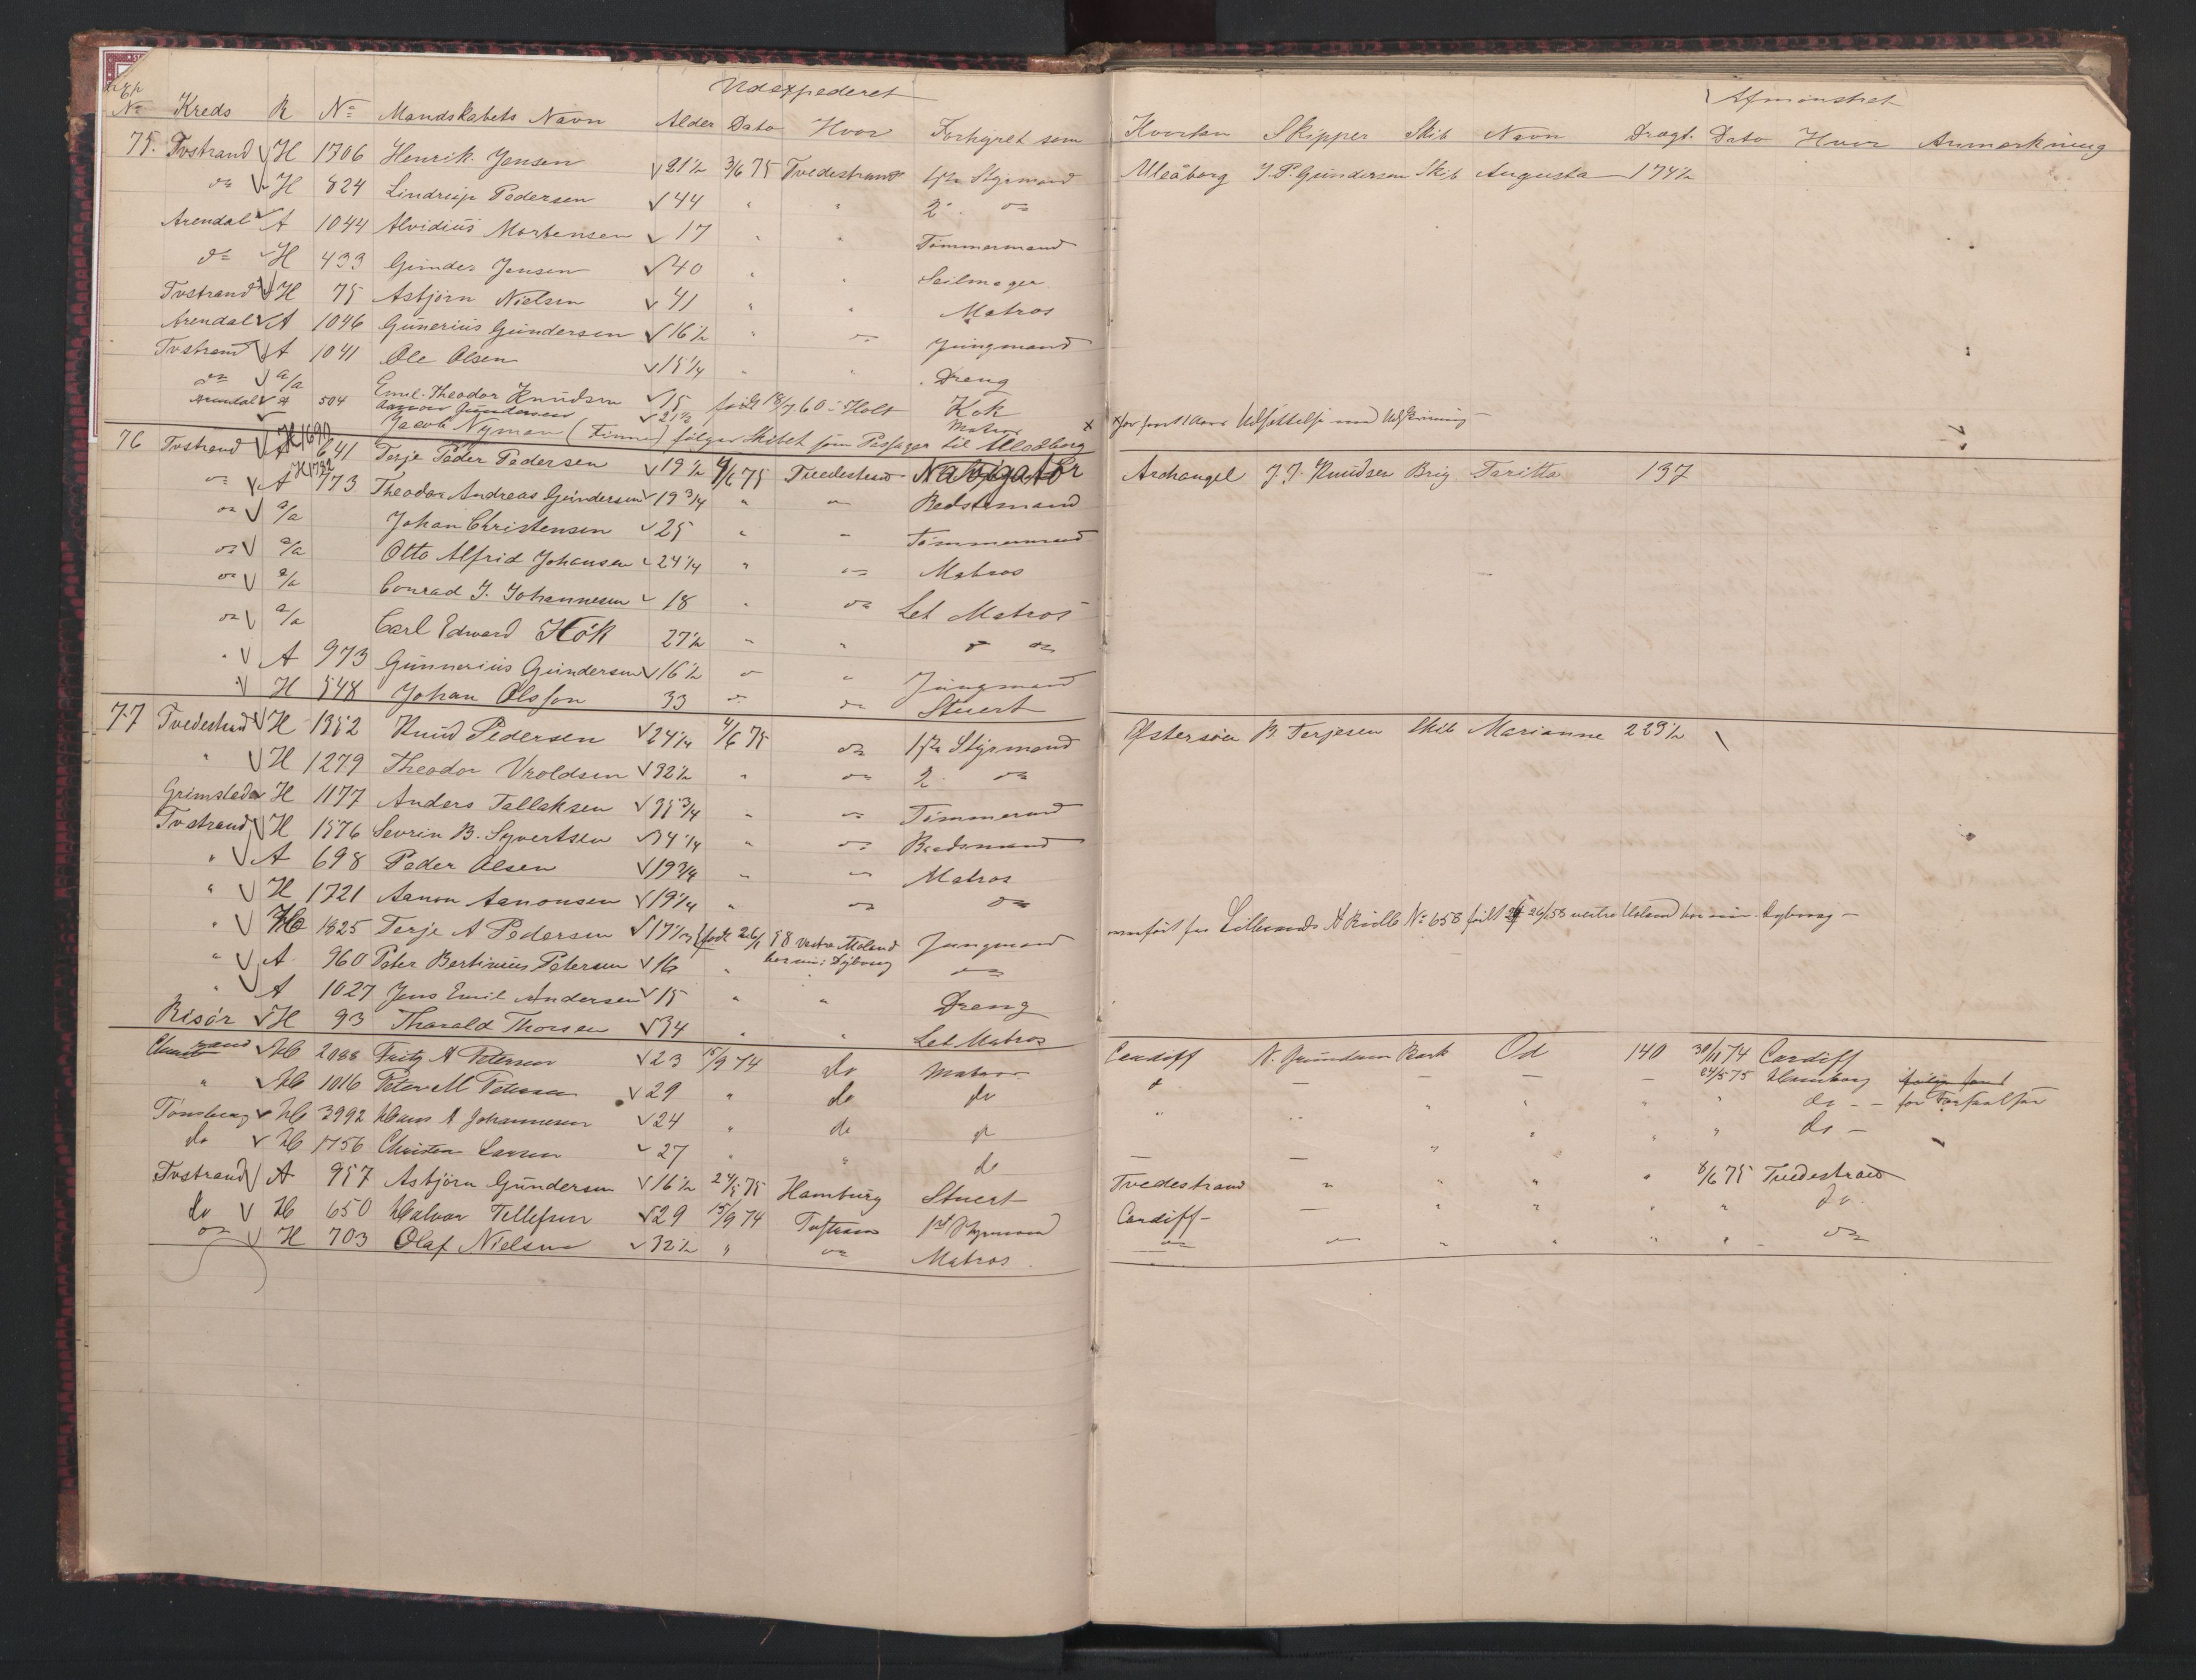 Udexpederet
Exp
No Kreds R No Mandskabets Navn Alder Dato Hvor Forhyret som
75. Tvstrand H 1306 Henrik Jensen 21½ 3/6 75 Tvedestrand 1ste Styrmand
do H 824 Lindrup Pedersen 44 " " 2. do
Arendal A 1044 Alvidius Mortensen 17 " " Tømmermand
do H 433 Gunder Jensen 40 " " Seilmager
Tvstrand H 75 Asbjørn Nielsen 41 " " Matros
Arendal A 1046 Gunerius Gundersen 16½ " do Jungmand
Tvstrand A 1041 Ole Olsen 15¼ " " Dreng
do a/a Emil Theodor Knudsen 15 født 18/7 60 i Holt Kok
Arendal A 504 Aanon Gundersen 21½ Matros x
Jacob Nyman (Finne) følger Skibet som Passager til Uleåborg
76 Tvstrand H 1690 A 641 Terje Peder Pedersen 19½ 4/6 75 Tvedestrand Navigatør
do H 1732 A 773 Theodor Andreas Gundersen 19¾ " do Bedstemand
do a/a Johan Christensen 25 " " Tømmermand
do a/a Otto Alfrid Johansen 24¼ " do Matros
do a/a Conrad J. Johannesen 18 " do Let Matros
do a/a Carl Edward Hök 27½ " " do do
" A 973 Gunnerius Gundersen 16½ " " Jungmand
" H 548 Johan Olsson 33 do do Stuert
77 Tvedestrand H 1352 Knud Pedersen 24¼ 4/6 75 do 1ste Styrmand
" H 1279 Theodor Vroldsen 32½ " do 2. do
Grimstad H 1177 Anders Tallaksen 35¾ " do Tømmermand
Tvstrand H 1576 Sevrin B. Syvertsen 34¼ " do Bedsmand
" A 698 Peder Olsen 19¾ " do Matros
" H 1721 Aanon Aanonsen 19¼ " do do
" H 1825 Terje A Pedersen 17½ født 26/1 58 Vestre Moland Jungmand
bor nu i Dybvaag
" A 960 Peter Bertinius Petersen 16 " do
" A 1027 Jens Emil Andersen 15 " " Dreng
Risør H 93 Tharald Thorsen 34 " " Let Matros
rand H 2088 Fritz A Petersen 23 15/9 74 do Matros
" H 1016 Peter M Petersen 29 " do do
Tønsberg H 3992 Hans A Johannesen 24 " do do
do H 1756 Christen Larsen 27 " " do
Tvstrand A 957 Asbjørn Gundersen 16½ 24/5 75 Hamburg Stuert
do H 650 Halvor Tellefsen 29 15/9 74 1st Styrmand
do H 703 Olaf Nielsen 32½ " do Matros
Afmønstret
Hvorhen Skipper Skib Navn Drægt. Dato Hvor Anmærkning
Uleåborg J. P. Gundersen Skib Augusta 174½
x for
Archangel J. J. Knudsen Brig Taritta 137
Østersøen B. Terjesen Skib Marianne 229½
fra Lillesands A Rulle No 658 født 26/1 58 vestre Moland bor nu i Dybvaag
Cardiff N. Gundersen Bark Od 140 30/11 74 Cardiff
" — — — — 24/5 75 Hamburg
" " " " " " do - - for
— — " " " " do -
Tvedestrand " " " " 8/6 75 Tvedestrand
Cardiff — " " " " do
do do " " " " do